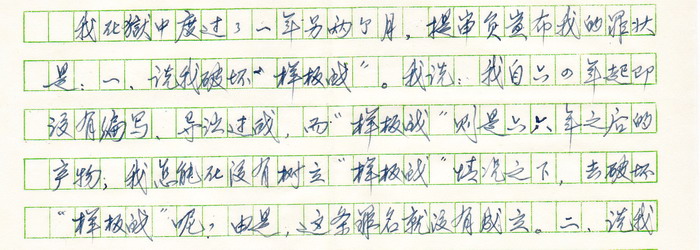 我在獄中度过了一年另两个月，提审员宣布我的罪状
是：一、说我破坏“样板戏”。我说：我自六〇年起即
没有编写、导演过戏，而“样板戏”则是六六年之后的
产物；我怎能在没有树立“样板戏”情况之下，去破坏
“样板戏”呢？由是，这条罪名就没有成立。二、说我